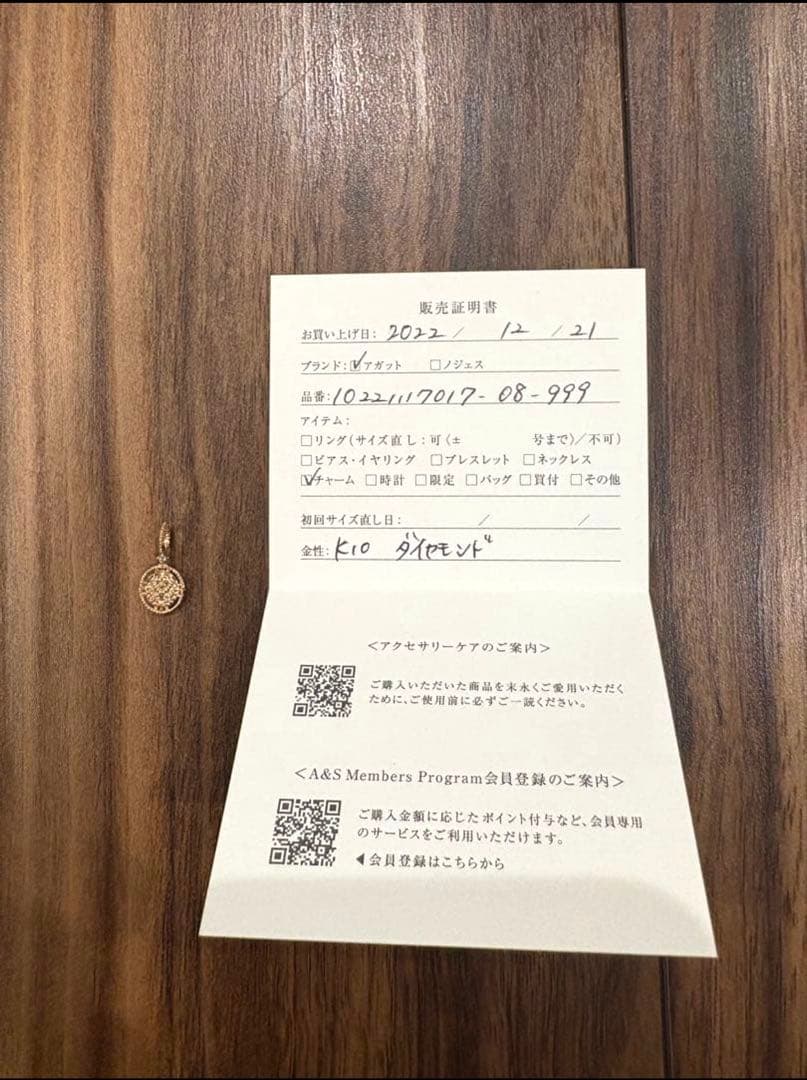 販売証明書
お買い上げ日: 2022 / 12 / 21
ブランド: ☑アガット □ノジェス
品番: 10221117017-08-999
アイテム:
□リング(サイズ直し:可〈± 号まで〉/不可)
□ピアス・イヤリング □ブレスレット □ネックレス
☑チャーム □時計 □限定 □バッグ □買付 □その他
初回サイズ直し日: / /
金性: K10 ダイヤモンド
<アクセサリーケアのご案内>
ご購入いただいた商品を末永くご愛用いただく
ために、ご使用前に必ずご一読ください。
<A&S Members Program会員登録のご案内>
ご購入金額に応じたポイント付与など、会員専用
のサービスをご利用いただけます。
◀会員登録はこちらから